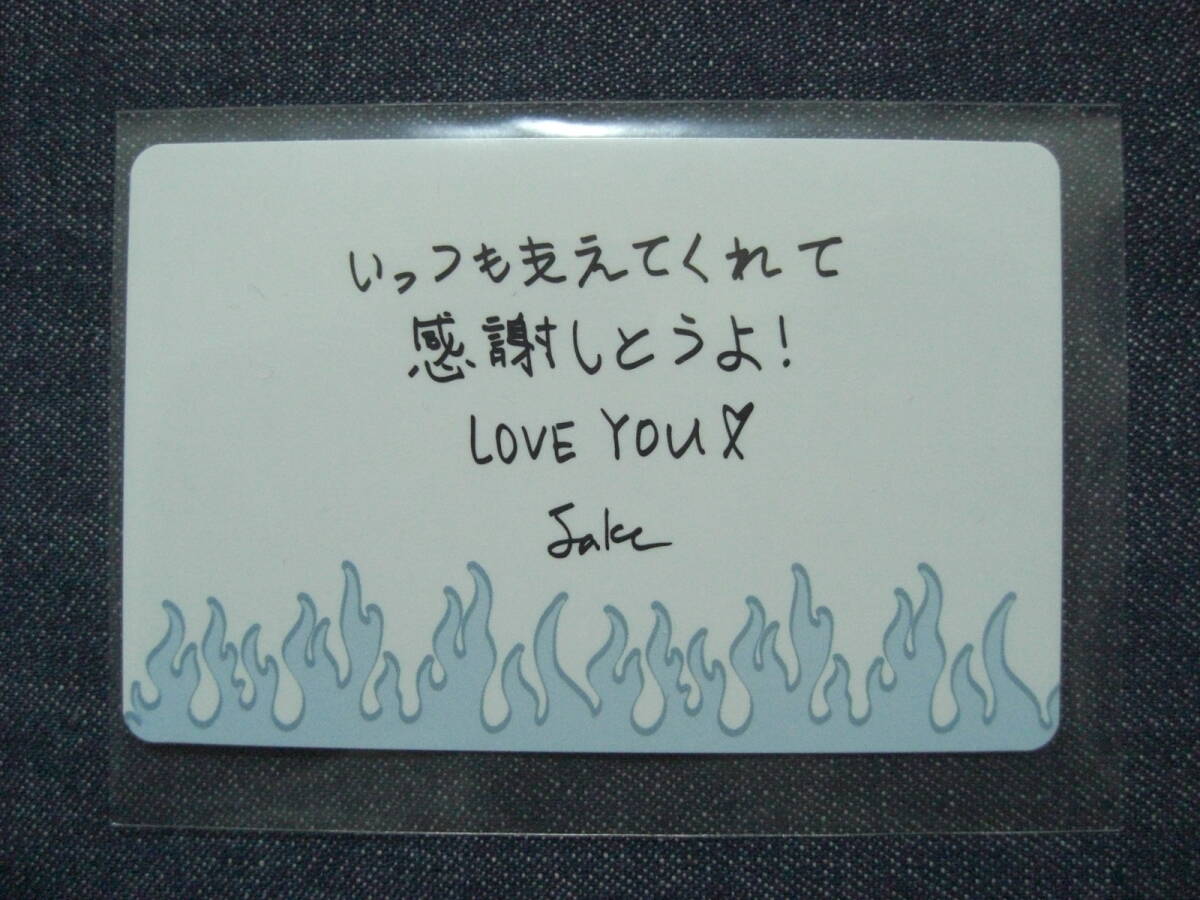 いっつも支えてくれて
感謝しとうよ！
LOVE YOU♡
Jake